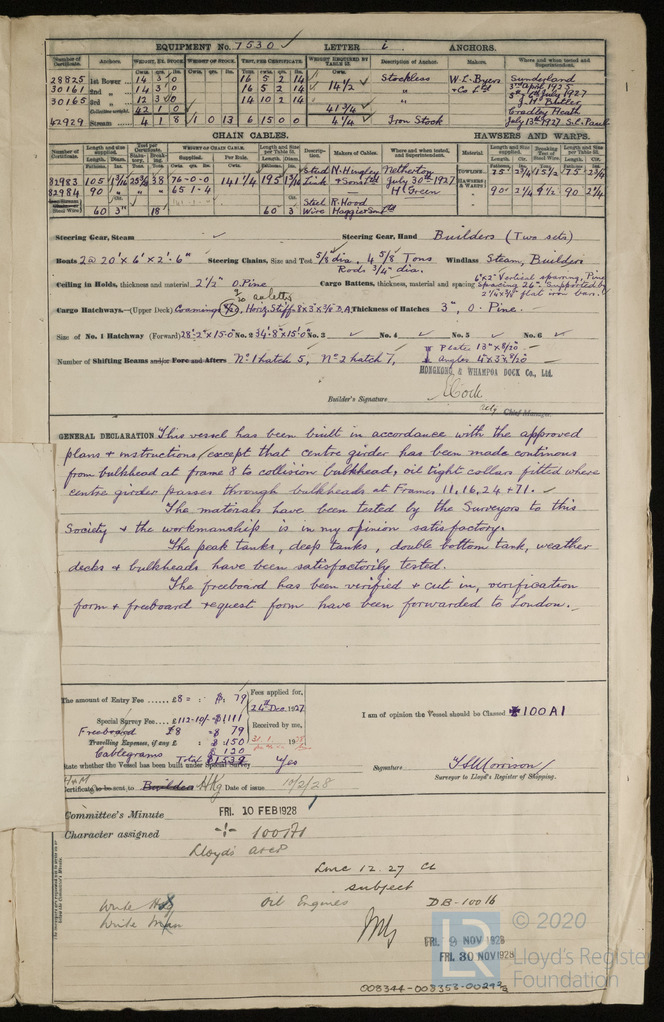 EQUIPMENT No. 7530 ✓ LETTER i ANCHORS.
Number of Certificate. Anchors. WEIGHT, EX. STOCK. WEIGHT OF STOCK. TEST, PER CERTIFICATE. WEIGHT REQUIRED BY TABLE 31. Description of Anchor. Makers. Where and when tested and Superintendent.
28825 1st Bower 14 3 0 16 5 2 14 Stockless W.L. Byers Sunderland
30161 2nd " 14 3 0 16 5 2 14 14½ ✓ " + Co Ltd 3rd April 1925
30165 3rd " 12 3 0 14 10 2 14 " 5th 6th July 1927
Collective weight 42 1 0 41¾ ✓ J.H. Butler
Cradley Heath
42929 Stream 4 1 8 1 0 13 6 15 0 0 4¼ ✓ Iron Stock July 13th 1927 S.C. Paul
CHAIN CABLES. HAWSERS AND WARPS.
Number of Certificate. Length and size supplied. Test per Certificate. WEIGHT OF CHAIN CABLE. Length and Size per Table 31. Description. Makers of Cables. Where and when tested, and Superintendent. Material Length and Size supplied. Breaking Test of Steel Wire. Length and Size per Table 31.
82983 105 1 3/16 25¾ 38 76-0-0 141¼ 195 1 3/16 Stud N. Hingley Netherton TOWLINE 75 2¾ 15½ 75 2¾
82984 90 65-1-4 Link + Sons Ltd July 30th 1927 H. Green HAWSERS & WARPS 90 2¼ 9½ 90 2¼
Steel Wire) 60 3" 18 60 3 Steel Wire R. Hood Haggie Son Ltd
Steering Gear, Steam ✓ Steering Gear, Hand Builders (Two sets)
Boats 2 @ 20' x 6' x 2'-6" Steering Chains, Size and Test 5/8 dia. 4 5/8 Tons Windlass Steam, Builders
Rods ¾" dia.
Ceiling in Holds, thickness and material 2½" O. Pine Cargo Battens, thickness, material and spacing 6"x2" Vertical sparring, Pine
spacing 26". Supported by
2¼ x 3/8 flat iron bar.
Cargo Hatchways.—(Upper Deck) Coamings 8/20, Horiz. Stiff 8x3x3/8 B.A. Thickness of Hatches 3", O. Pine.
Size of No. 1 Hatchway (Forward) 28'-2"x15'-0" No. 2 34'-8"x15'-0" No. 3 ✓ No. 4 ✓ No. 5 ✓ No. 6 ✓
Number of Shifting Beams and/or Fore and Afters No 1 hatch 5, No 2 hatch 7, Plates 13"x8/20 ✓
Angles 4"x3"x8/20
HONGKONG & WHAMPOA DOCK Co., Ltd.
Builder's Signature E. Cock
Actg Chief Manager
GENERAL DECLARATION. This vessel has been built in accordance with the approved
plans + instructions (except that centre girder has been made continous
from bulkhead at frame 8 to collision bulkhead, oil tight collars fitted where
centre girder passes through bulkheads at Frames 11, 16, 24 + 71. ✓
The materials have been tested by the Surveyors to this
Society + the workmanship is in my opinion satisfactory.
The peak tanks, deep tanks, double bottom tank, weather
decks + bulkheads have been satisfactorily tested.
The freeboard has been verified + cut in, verification
form + freeboard request form have been forwarded to London.
The amount of Entry Fee £8 = : $ 79 Fees applied for,
24th Dec. 1927
Special Survey Fee £112-10/- $1111 Received by me,
Freeboard £8 $ 79
Travelling Expenses, if any £ : $ 150
Cablegrams $ 120
Total $1539
I am of opinion the Vessel should be Classed ✠100A1
State whether the Vessel has been built under Special Survey Yes
Signature
Surveyor to Lloyd's Register of Shipping.
Certificate to be sent to Builders HKg Date of issue 10/2/28
Committee's Minute FRI. 10 FEB 1928
Character assigned 100A1
Lloyd's A & CP
LMC 12.27 CL
subject
Oil Engines DB-100 lb
Write HKg
FRI. 9 NOV 1928
FRI. 30 NOV 1928
LR
© 2020
Lloyd's Register
Foundation
008344-008353-0029 2/3